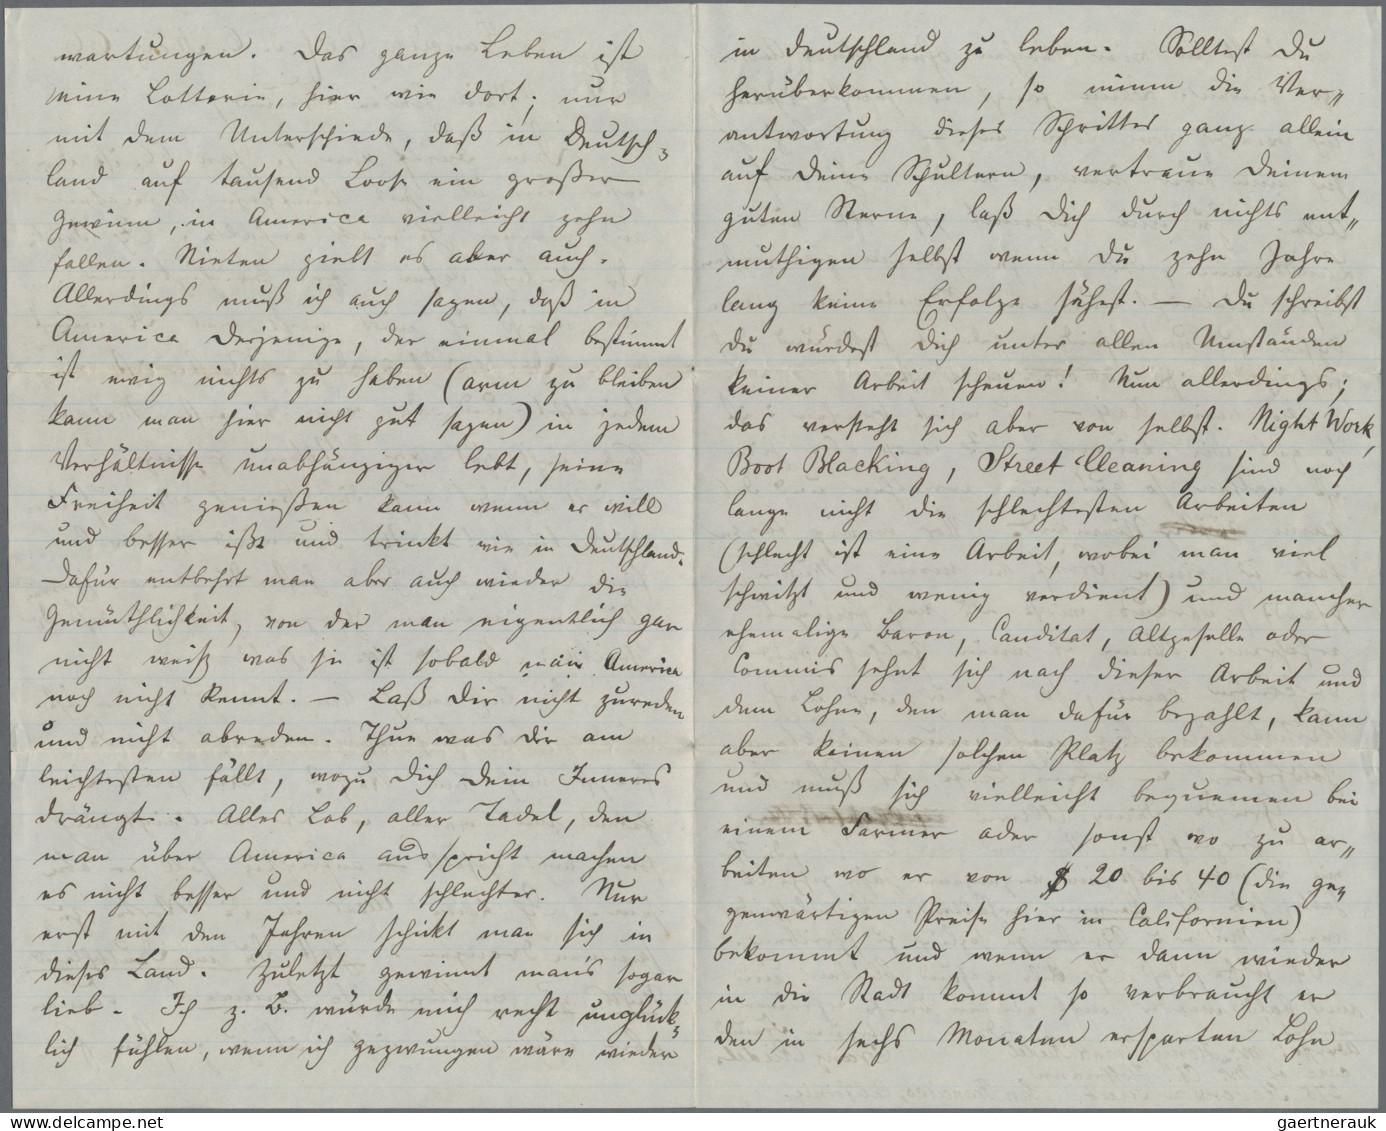 wartungen. Das ganze Leben ist
eine Lotterie, hier wie dort; nur
mit dem Unterschiede, daß in Deutsch-
land auf tausend Loose ein großer
Gewinn, in America vielleicht zehn
fallen. Nieten giebt es aber auch.
Allerdings muß ich auch sagen, daß in
America derjenige, der einmal bestimmt
ist ewig nichts zu haben (arm zu bleiben
kann man hier nicht gut sagen) in jedem
Verhältnisse unabhängiger lebt, seine
Freiheit genießen kann wenn er will
und besser ißt und trinkt wie in Deutschland.
Dafür entbehrt man aber auch wieder die
Gemüthlichkeit, von der man eigentlich gar
nicht weiß was sie ist sobald man America
noch nicht kennt. — Laß Dir nicht zureden
und nicht abreden. Thue was Dir am
leichtesten fällt, wozu Dich Dein Inneres
drängt. Alles Lob, aller Tadel, den
man über America ausspricht machen
es nicht besser und nicht schlechter. Nur
erst mit den Jahren schickt man sich in
dieses Land. Zuletzt gewinnt man's sogar
lieb. Ich z. B. würde mich recht unglück-
lich fühlen, wenn ich gezwungen wäre wieder
in Deutschland zu leben. Solltest Du
herüberkommen, so nimm die Ver-
antwortung dieses Schrittes ganz allein
auf Deine Schultern, vertraue Deinem
guten Sterne, laß Dich durch nichts ent-
muthigen selbst wenn Du zehn Jahre
lang keine Erfolge sähest. — Du schreibst
Du würdest Dich unter allen Umständen
keiner Arbeit scheuen! Nun allerdings;
das versteht sich aber von selbst. Night Work,
Boot Blacking, Street Cleaning sind noch
lange nicht die schlechtesten Arbeiten
(schlecht ist eine Arbeit, wobei man viel
schwitzt und wenig verdient) und mancher
ehemalige Baron, Canditat, Altgeselle oder
Commis sehnt sich nach dieser Arbeit und
dem Lohne, den man dafür bezahlt, kann
aber keinen solchen Platz bekommen
und muß sich vielleicht bequemen bei
einem Farmer oder sonst wo zu ar-
beiten wo er von $ 20 bis 40 (die ge-
genwärtigen Preise hier in Californien)
bekommt und wenn er dann wieder
in die Stadt kommt so verbraucht er
den in sechs Monaten ersparten Lohn
gaertnerauk